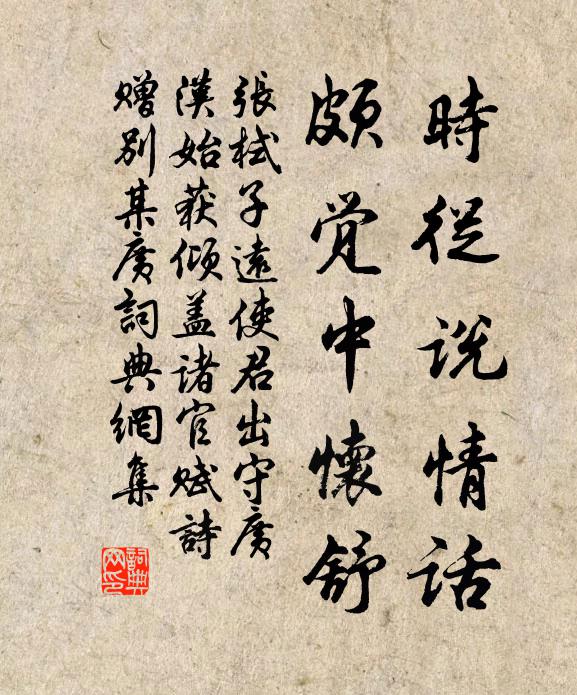 時從说情话
頗覺中懷舒
張栻子遠使君出守廣
漢始获傾盖诸官赋詩
贈别某廣詞典網集
詞典网印